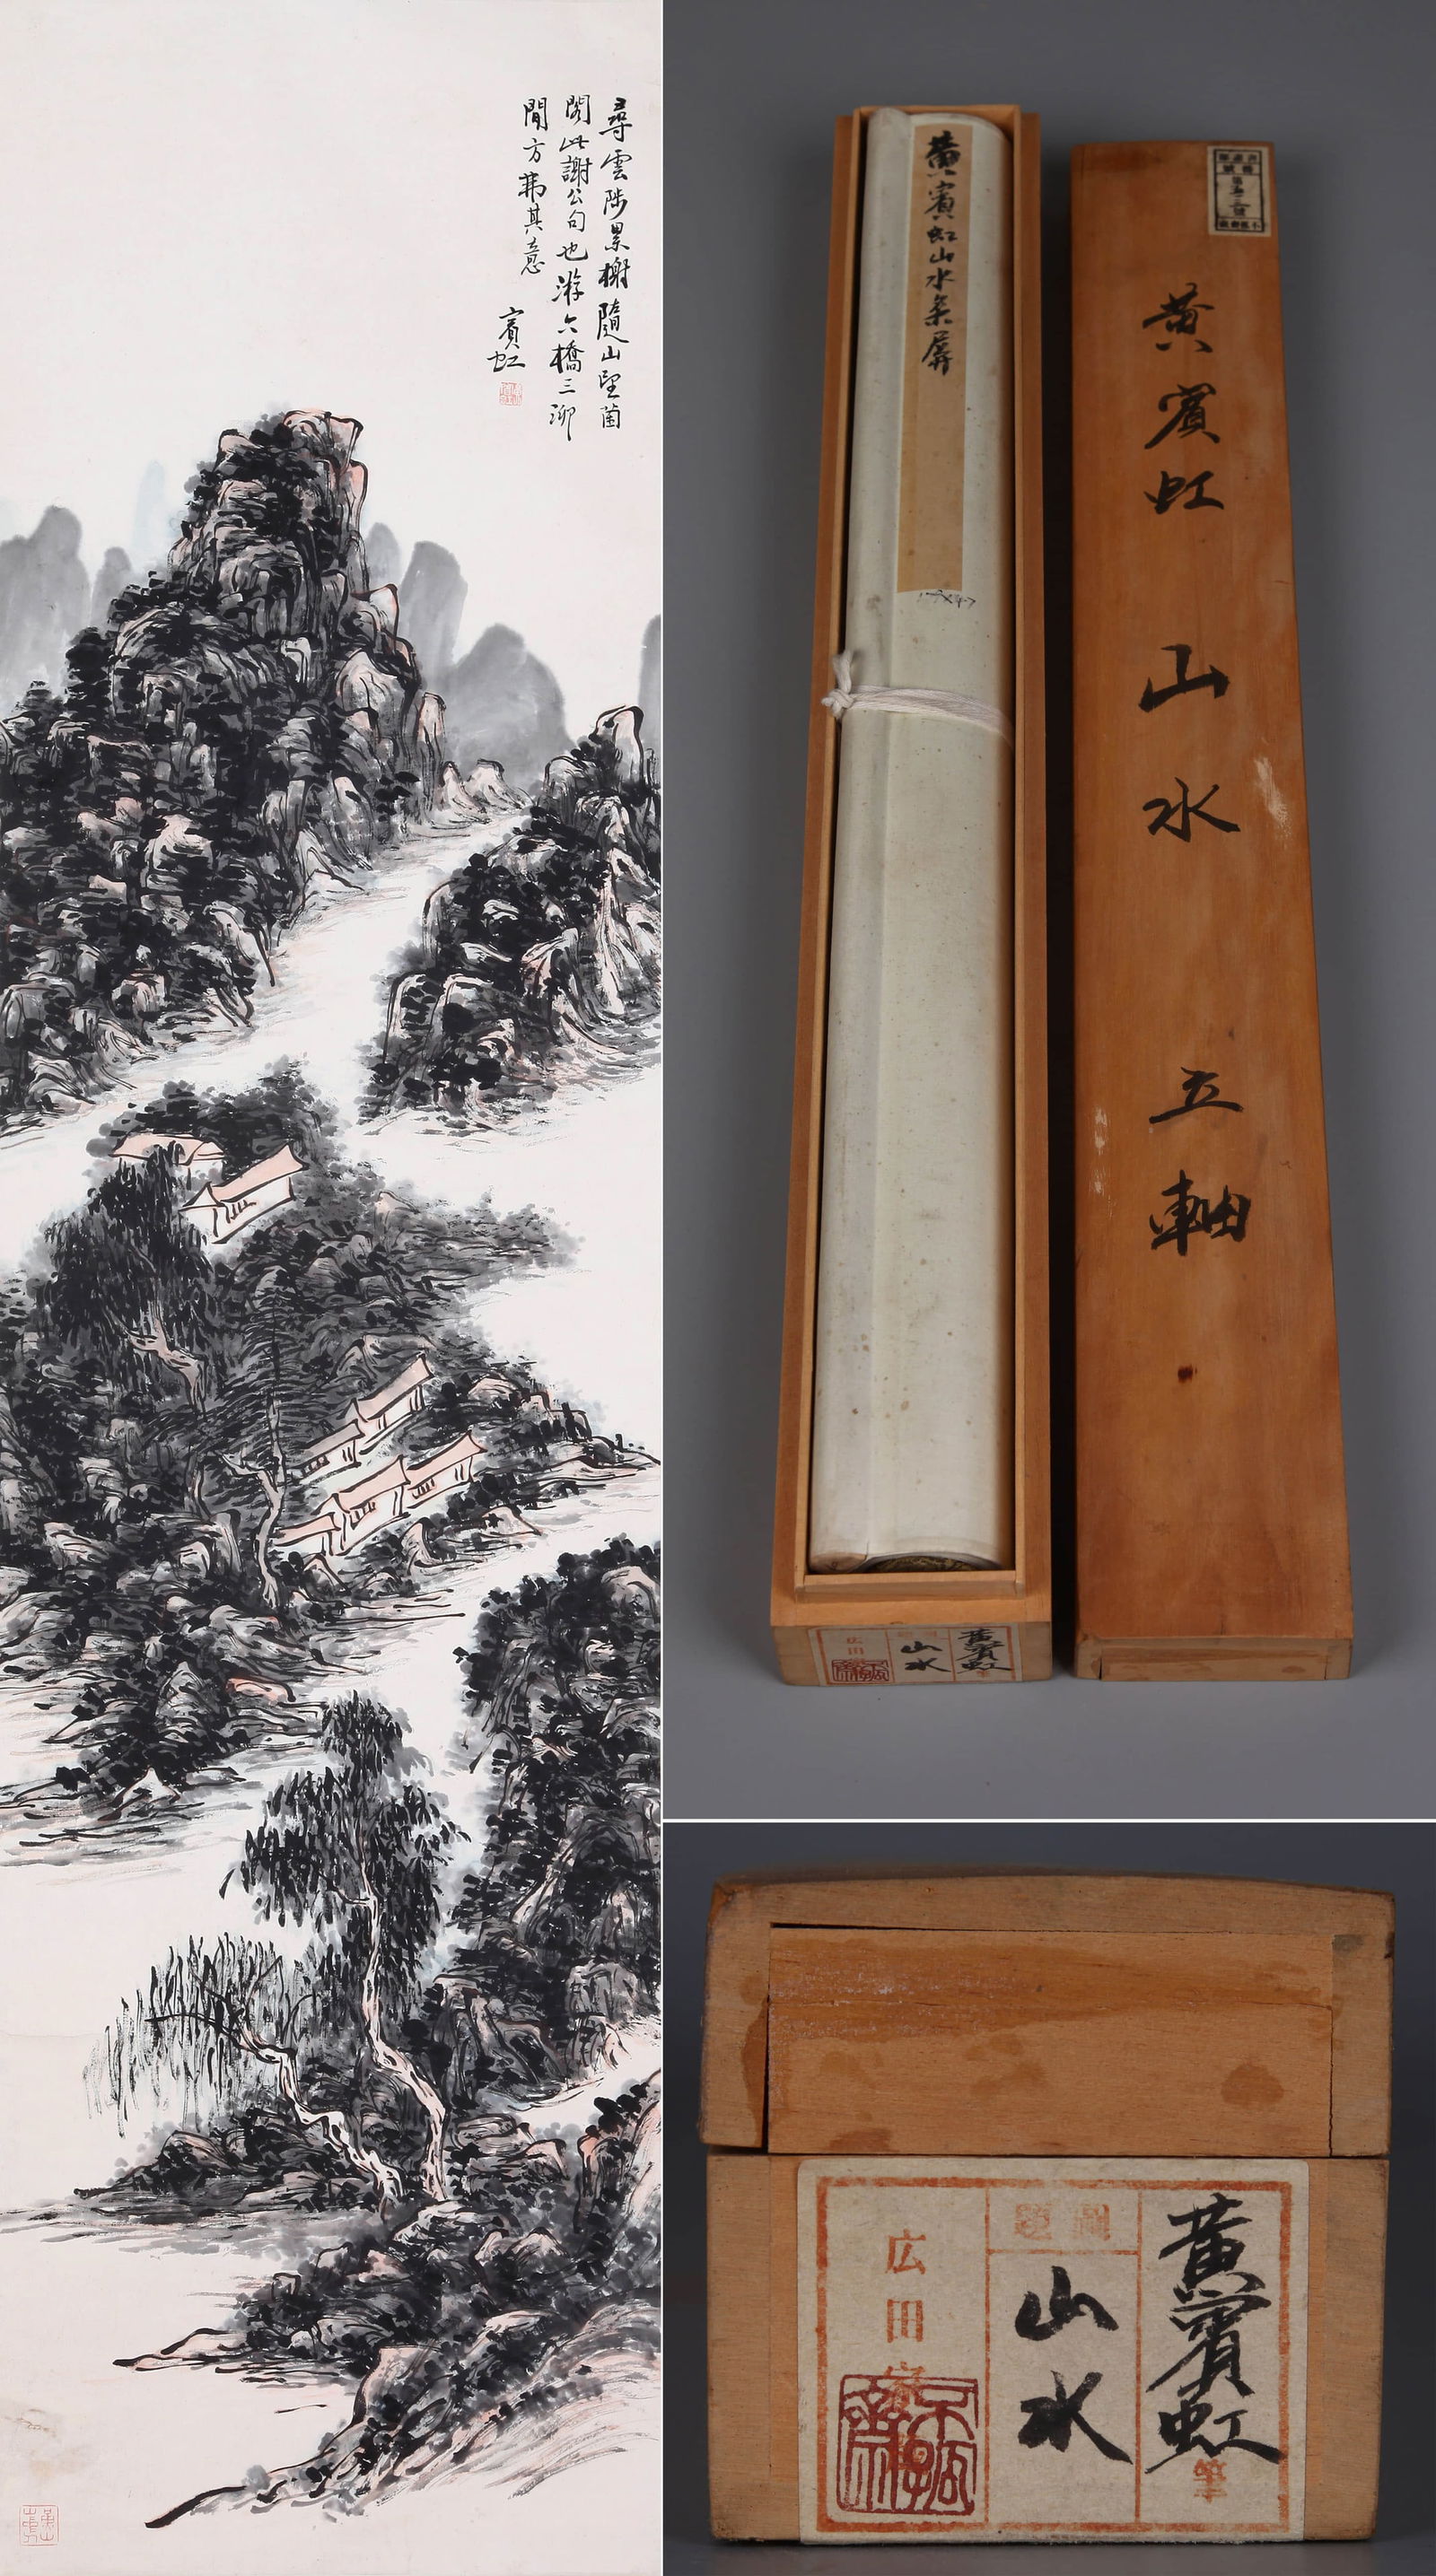 尋雲陟累榭隨山望菌
閣此謝公句也游六橋三泖
間方茀其意
賓虹
黄賓虹山水条屏
黄賓虹 山水 立軸
黄賓虹
山水
広田
黄賓虹
筆
山水
広田
不孤齋